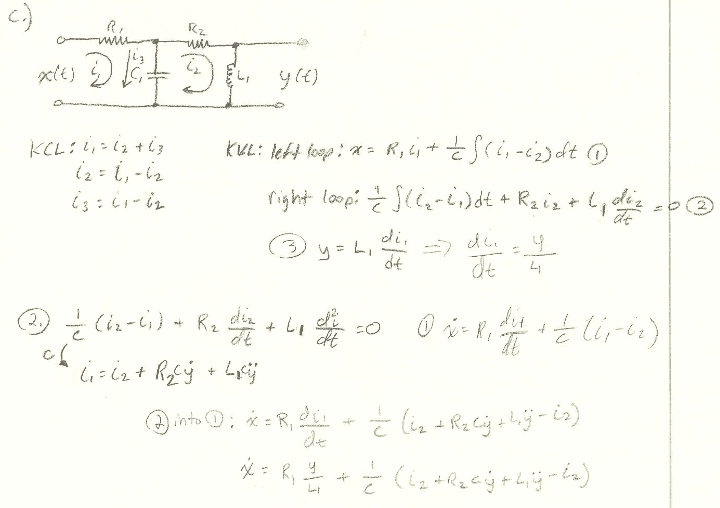 c.)
R₁ R₂
x(t) i₁ i₃ C₁ i₂ L₁ y(t)
KCL: i₁ = i₂ + i₃ KVL: left loop: x = R₁i₁ + 1/C ∫(i₁-i₂)dt ①
i₂ = i₁ - i₂
i₃ = i₁ - i₂ right loop: 1/C ∫(i₂-i₁)dt + R₂i₂ + L₁ di₂/dt = 0 ②
③ y = L₁ di₁/dt ⇒ di₁/dt = y/L₁
②. 1/C (i₂-i₁) + R₂ di₂/dt + L₁ d²i/dt = 0 ① ẋ = R₁ di₁/dt + 1/C (i₁-i₂)
i₁ = i₂ + R₂Cẏ + L₁Cÿ
② into ①: ẋ = R₁ di₁/dt + 1/C (i₂ + R₂Cẏ + L₁ÿ - i₂)
ẋ = R₁ y/L₁ + 1/C (i₂ + R₂Cẏ + L₁ÿ - i₂)